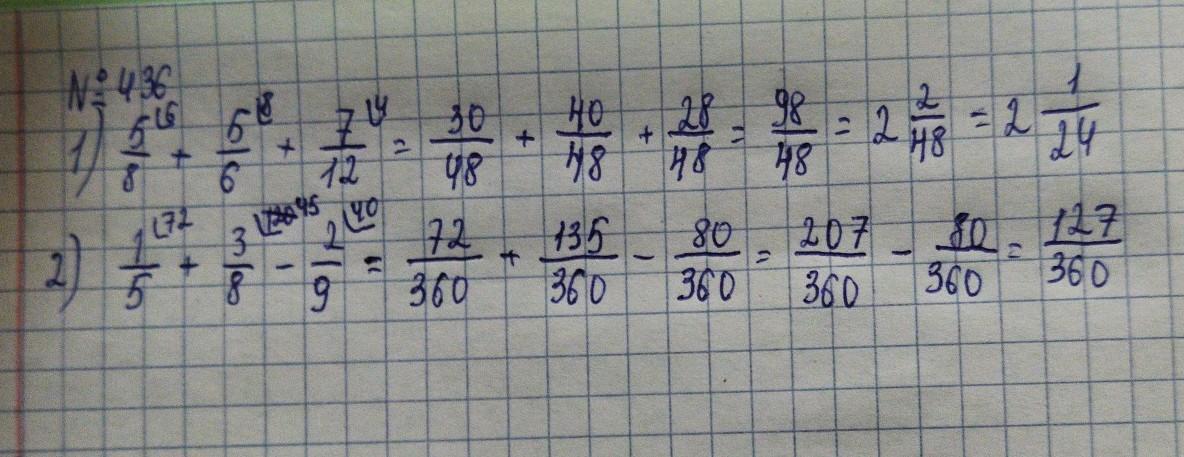 № 436
1) 5/8 ⌊6 + 5/6 ⌊8 + 7/12 ⌊4 = 30/48 + 40/48 + 28/48 = 98/48 = 2 2/48 = 2 1/24
2) 1/5 ⌊72 + 3/8 ⌊45 - 2/9 ⌊40 = 72/360 + 135/360 - 80/360 = 207/360 - 80/360 = 127/360